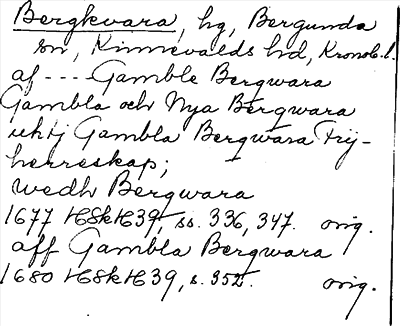 Bergkvara, hg, Bergunda
sn, Kinnevalds hd, Kronob. l.
af ---- Gamble Bergwara
Gambla och Nya Bergwara
uhti Gambla Bergwara Frij-
herreskap;
wedh Bergwara
1677 HSkH 39, ss. 336, 347. orig.
aff Gambla Bergwara
1680 HSkH 39, s. 352. orig.